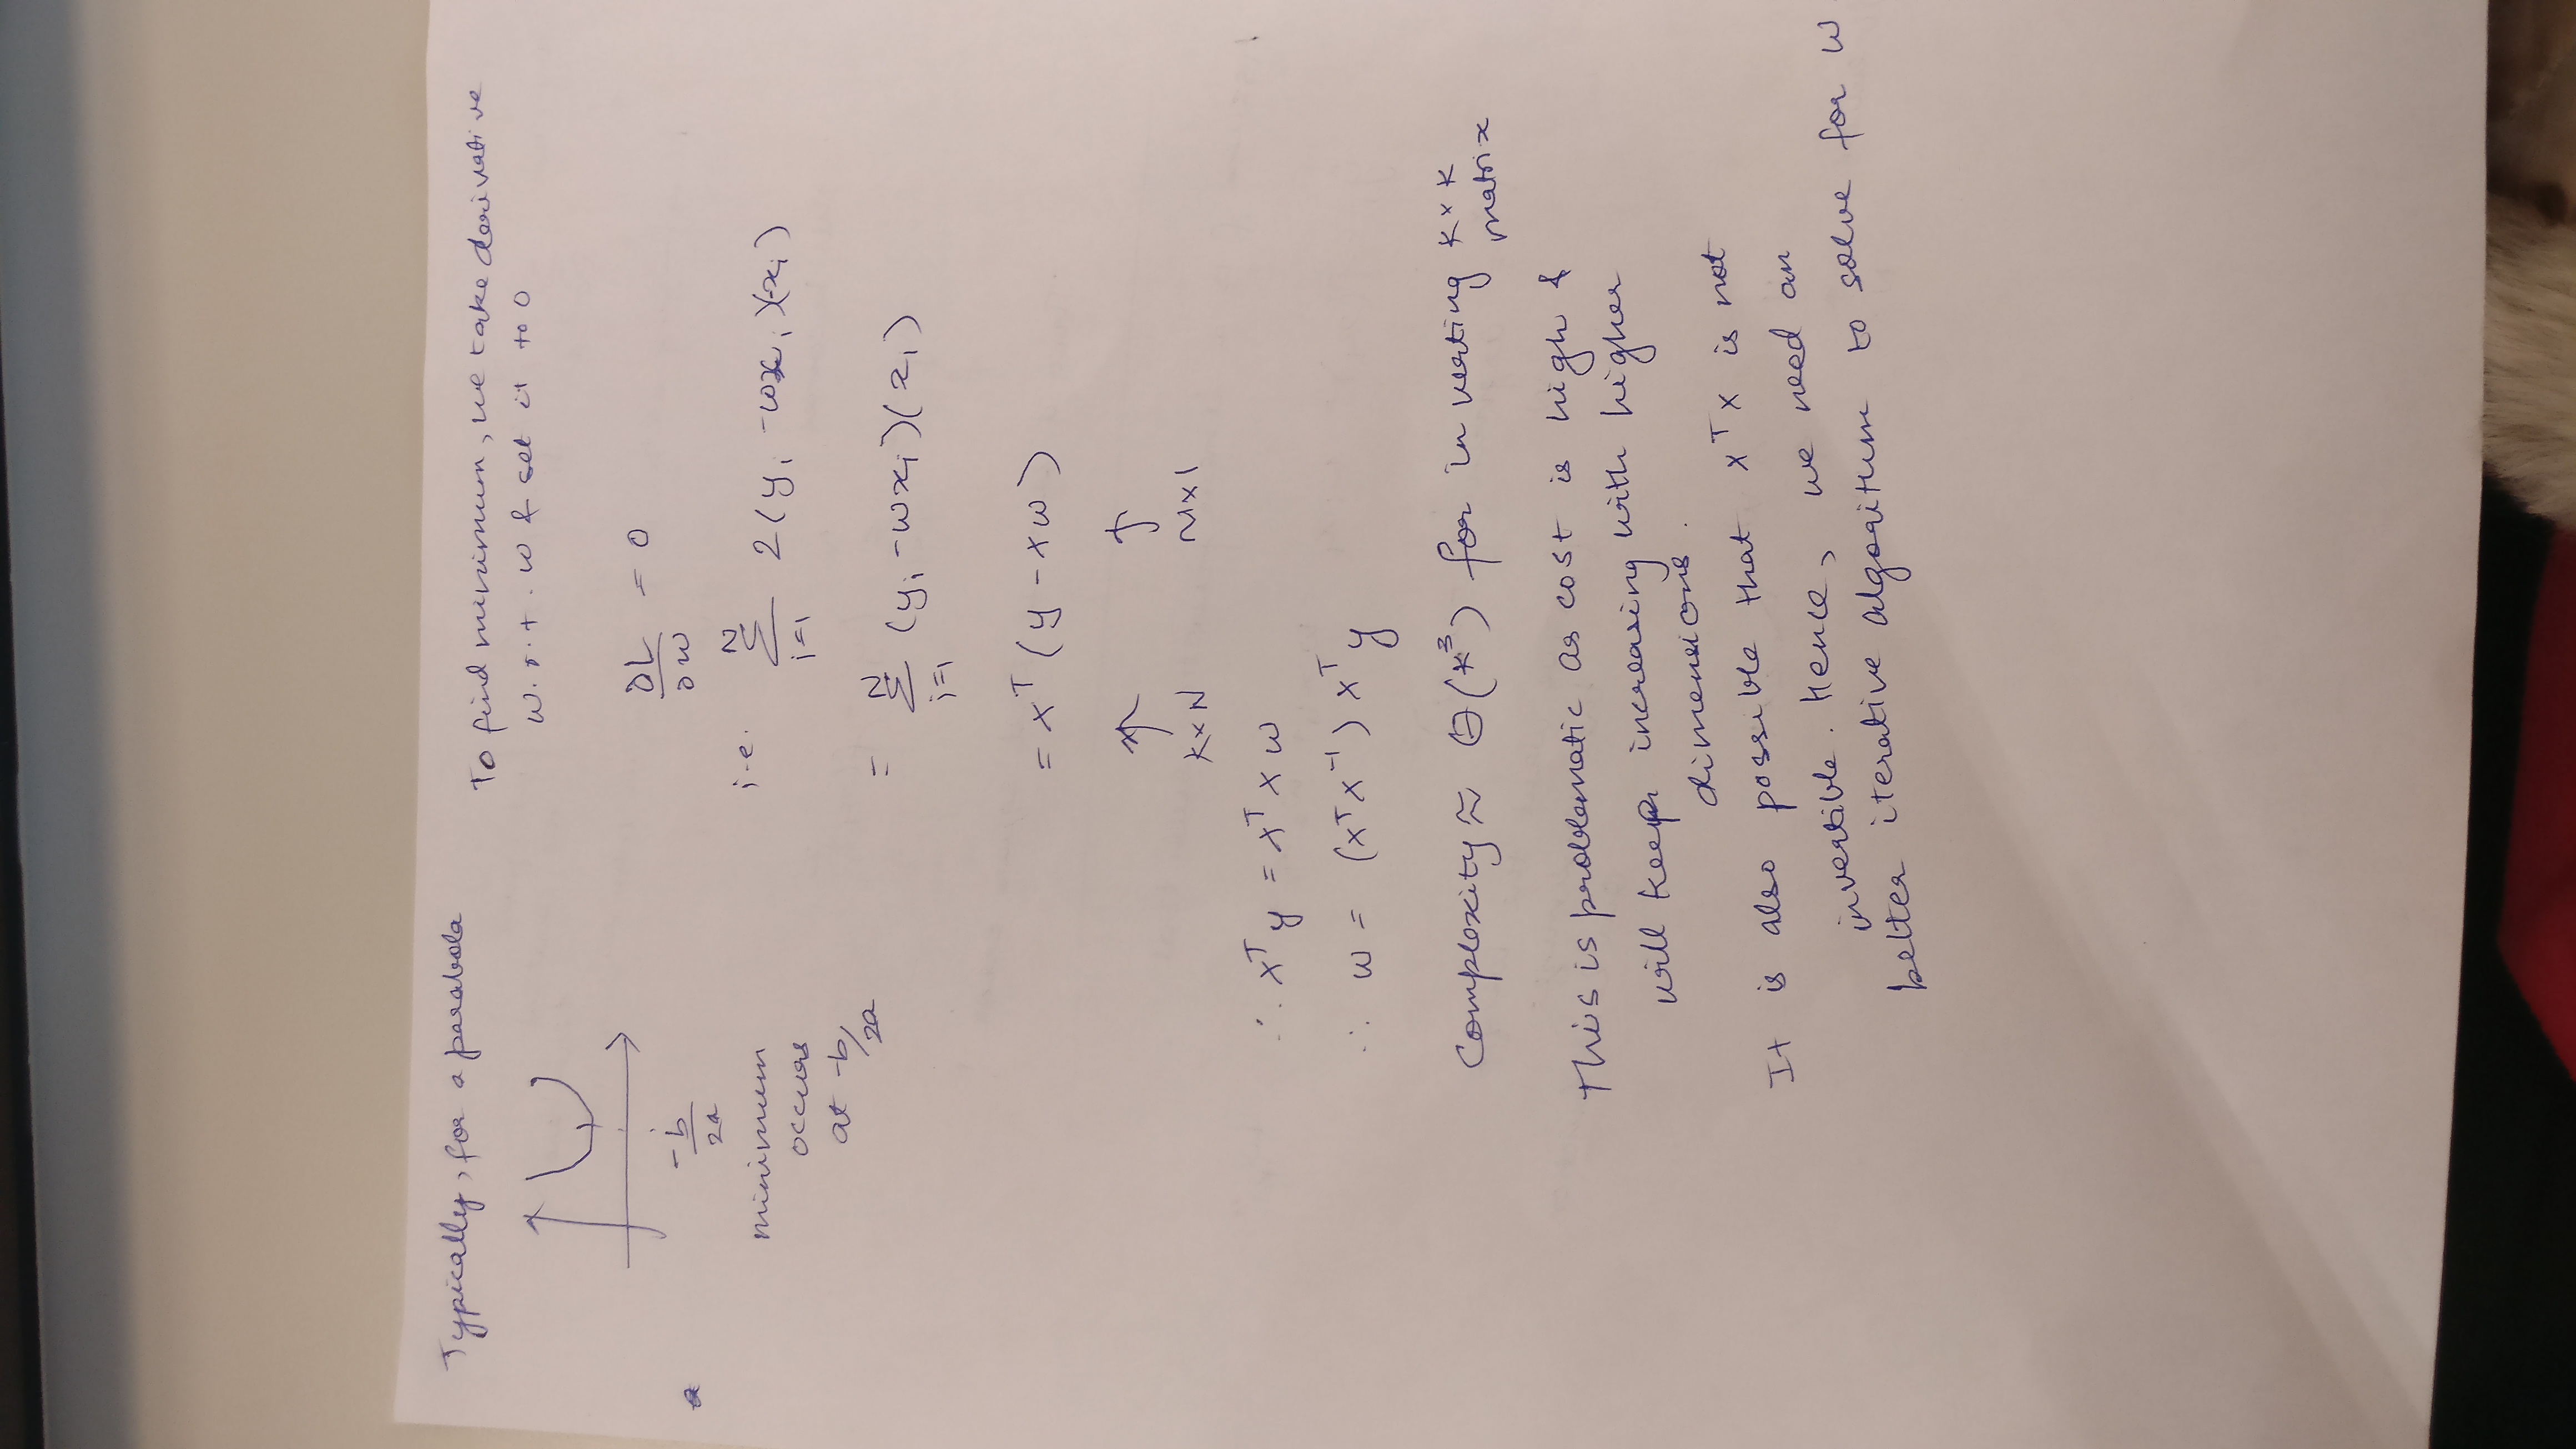 Typically, for a parabola
-b/2a
minimum
occurs
at -b/2a
To find minimum, we take derivative
w.r.t. w & set it to 0
∂L/∂w = 0
i.e. N Σ i=1 2(yi - wxi)(-xi)
= N Σ i=1 (yi - wxi)(xi)
= X^T (y - Xw)
↑ ↑
K×N N×1
∴ X^T y = X^T X w
∴ w = (X^T X^-1) X^T y
Complexity ≈ Θ(K^3) for inverting K×K
matrix
This is problematic as cost is high &
will keep increasing with higher
dimensions.
It is also possible that X^T X is not
invertible. Hence, we need an
better iterative algorithm to solve for w